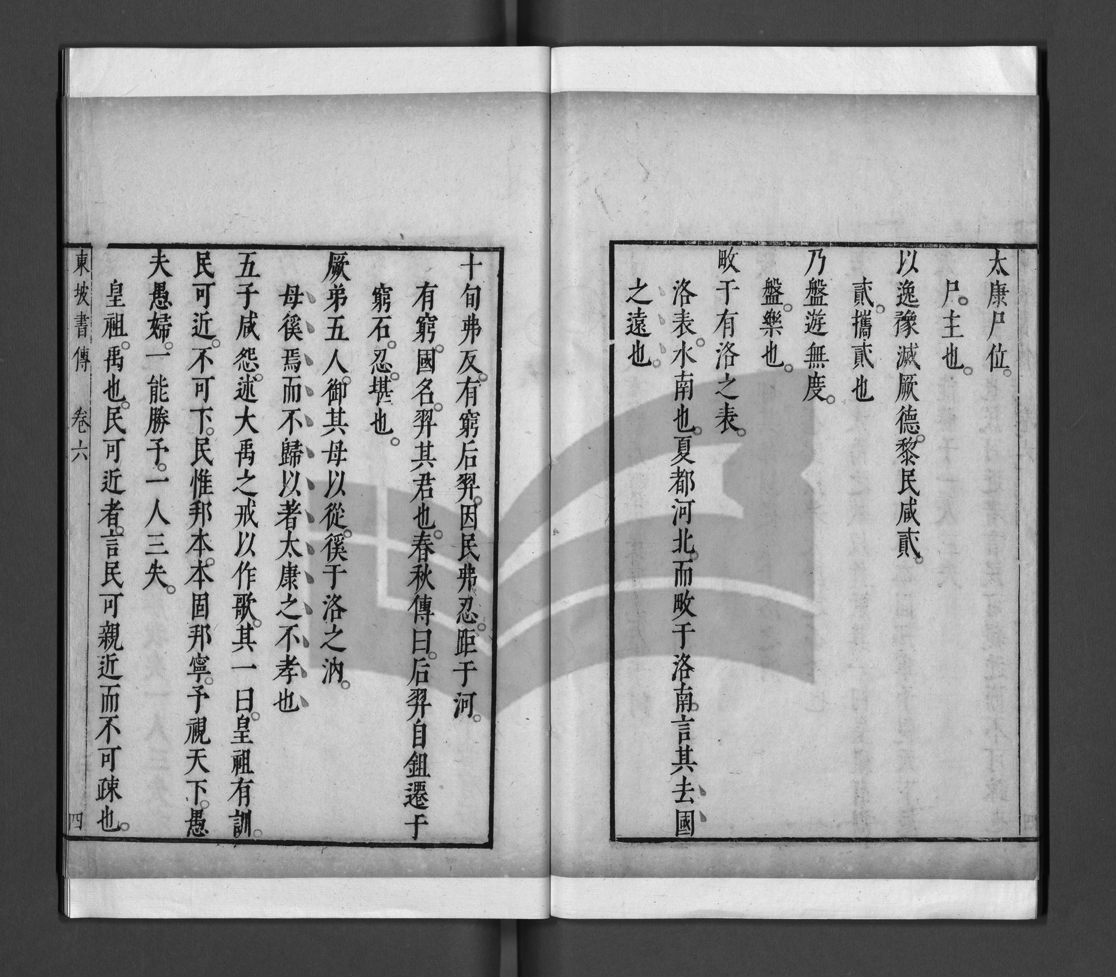 太康尸位。
尸。主也。
以逸豫滅厥德。黎民咸貳。
貳。攜貳也
乃盤遊無度。
盤。樂也。
畋于有洛之表。
洛表。水南也。夏都河北。而畋于洛南。言其去國
之遠也。
十旬弗反。有窮后羿。因民弗忍。距于河。
有窮。國名。羿其君也。春秋傳曰。后羿自鉏遷于
窮石。忍。堪也。
厥弟五人。御其母以從。徯于洛之汭。
母徯焉而不歸以著太康之不孝也
五子咸怨。述大禹之戒以作歌。其一曰。皇祖有訓。
民可近。不可下。民惟邦本。本固邦寧。予視天下。愚
夫愚婦。一能勝予。一人三失。
皇祖。禹也。民可近者。言民可親近而不可疎也。
東坡書傳 卷六 四